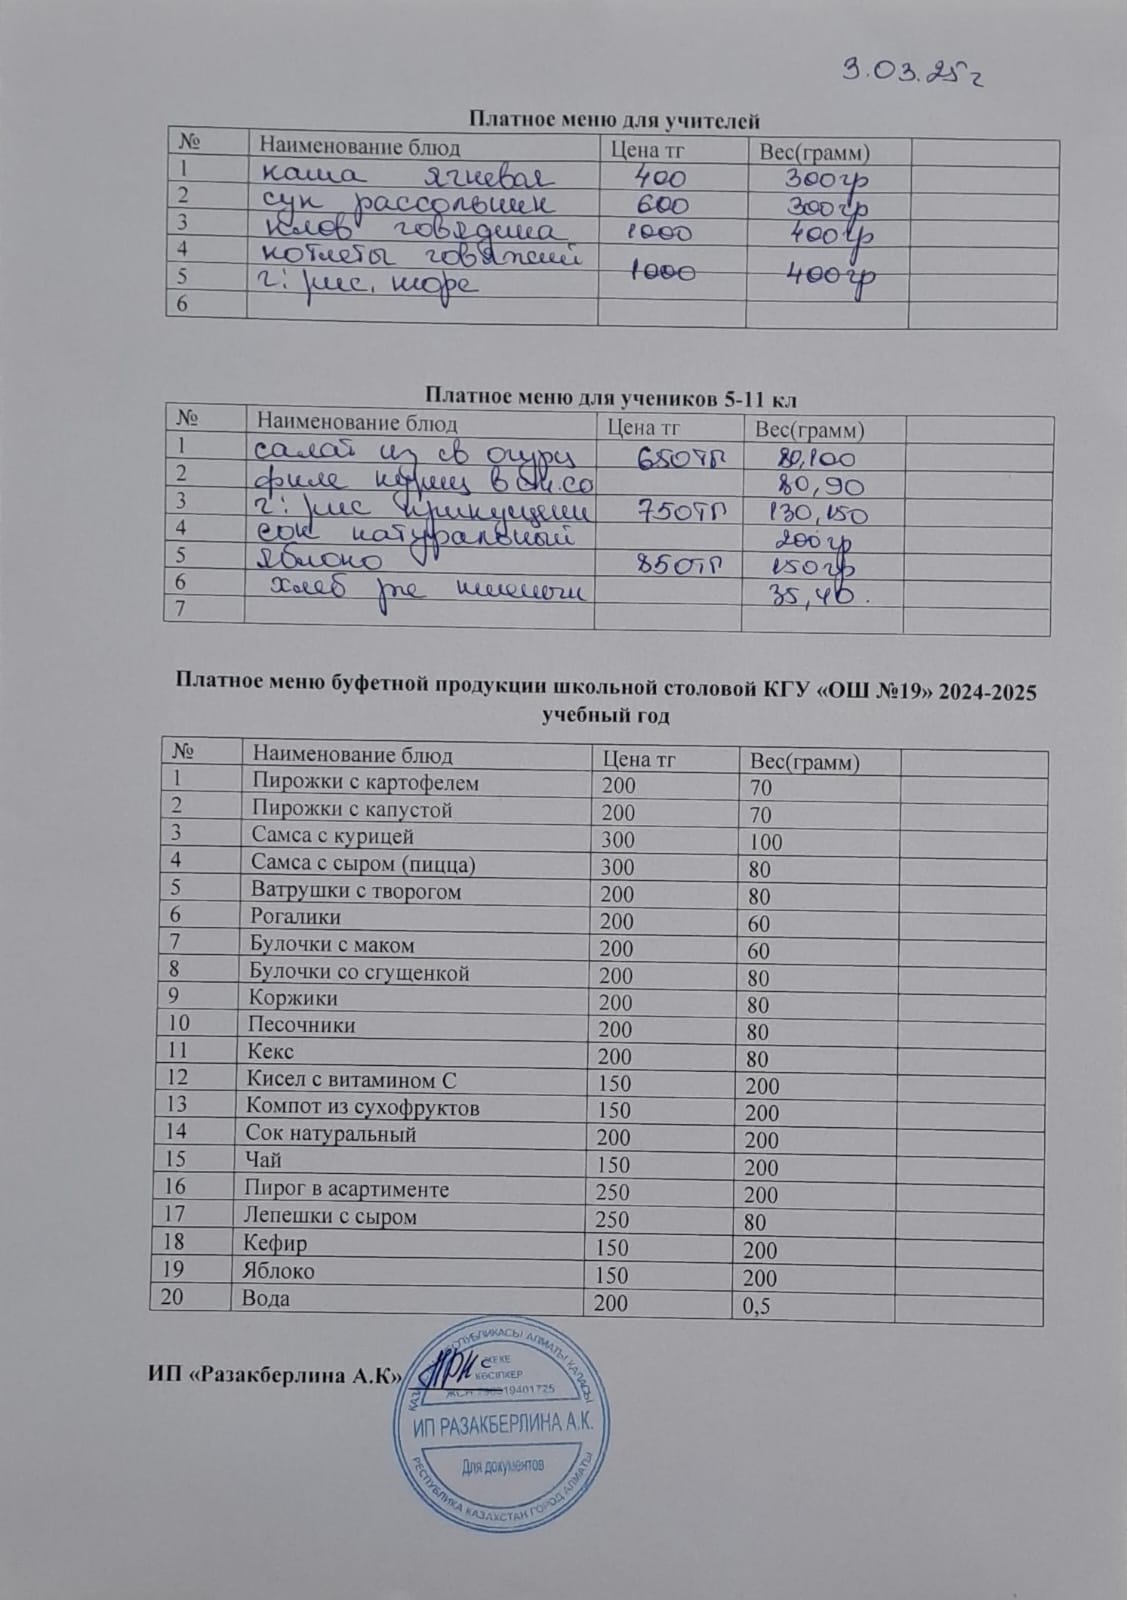 3.03.25г
Платное меню для учителей
№ Наименование блюд Цена тг Вес(грамм)
1 каша ячневая 400 300гр
2 суп рассольник 600 300гр
3 плов говядина 1000 400гр
4 котлеты говяжий
5 г: рис. пюре 1000 400гр
6
Платное меню для учеников 5-11 кл
№ Наименование блюд Цена тг Вес(грамм)
1 салат из св огурц 650тг 80,100
2 филе куриц в 80,90
3 г: рис 750тг 130,150
4 сок натуральный 200гр
5 яблоко 850тг 150гр
6 хлеб рж пшенич 35,40.
7
Платное меню буфетной продукции школьной столовой КГУ «ОШ №19» 2024-2025
учебный год
№ Наименование блюд Цена тг Вес(грамм)
1 Пирожки с картофелем 200 70
2 Пирожки с капустой 200 70
3 Самса с курицей 300 100
4 Самса с сыром (пицца) 300 80
5 Ватрушки с творогом 200 80
6 Рогалики 200 60
7 Булочки с маком 200 60
8 Булочки со сгущенкой 200 80
9 Коржики 200 80
10 Песочники 200 80
11 Кекс 200 80
12 Кисел с витамином С 150 200
13 Компот из сухофруктов 150 200
14 Сок натуральный 200 200
15 Чай 150 200
16 Пирог в асартименте 250 200
17 Лепешки с сыром 250 80
18 Кефир 150 200
19 Яблоко 150 200
20 Вода 200 0,5
ИП «Разакберлина А.К»
РЕСПУБЛИКАСЫ АЛМАТЫ ҚАЛАСЫ
ЖЕКЕ
КӘСІПКЕР
ИП РАЗАКБЕРЛИНА А.К.
Для документов
РЕСПУБЛИКА КАЗАХСТАН ГОРОД АЛМАТЫ